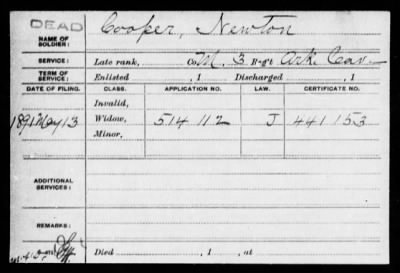 DEAD
NAME OF SOLDIER: Cooper, Newton
SERVICE: Late rank, Co. M, 3 Reg't Ark. Cav.
TERM OF SERVICE: Enlisted , 1 Discharged , 1
DATE OF FILING. CLASS. APPLICATION NO. LAW. CERTIFICATE NO.
Invalid,
1891 May 13 Widow, 514 112 J 441 153
Minor,
ADDITIONAL SERVICES:
REMARKS:
Died , 1 , at